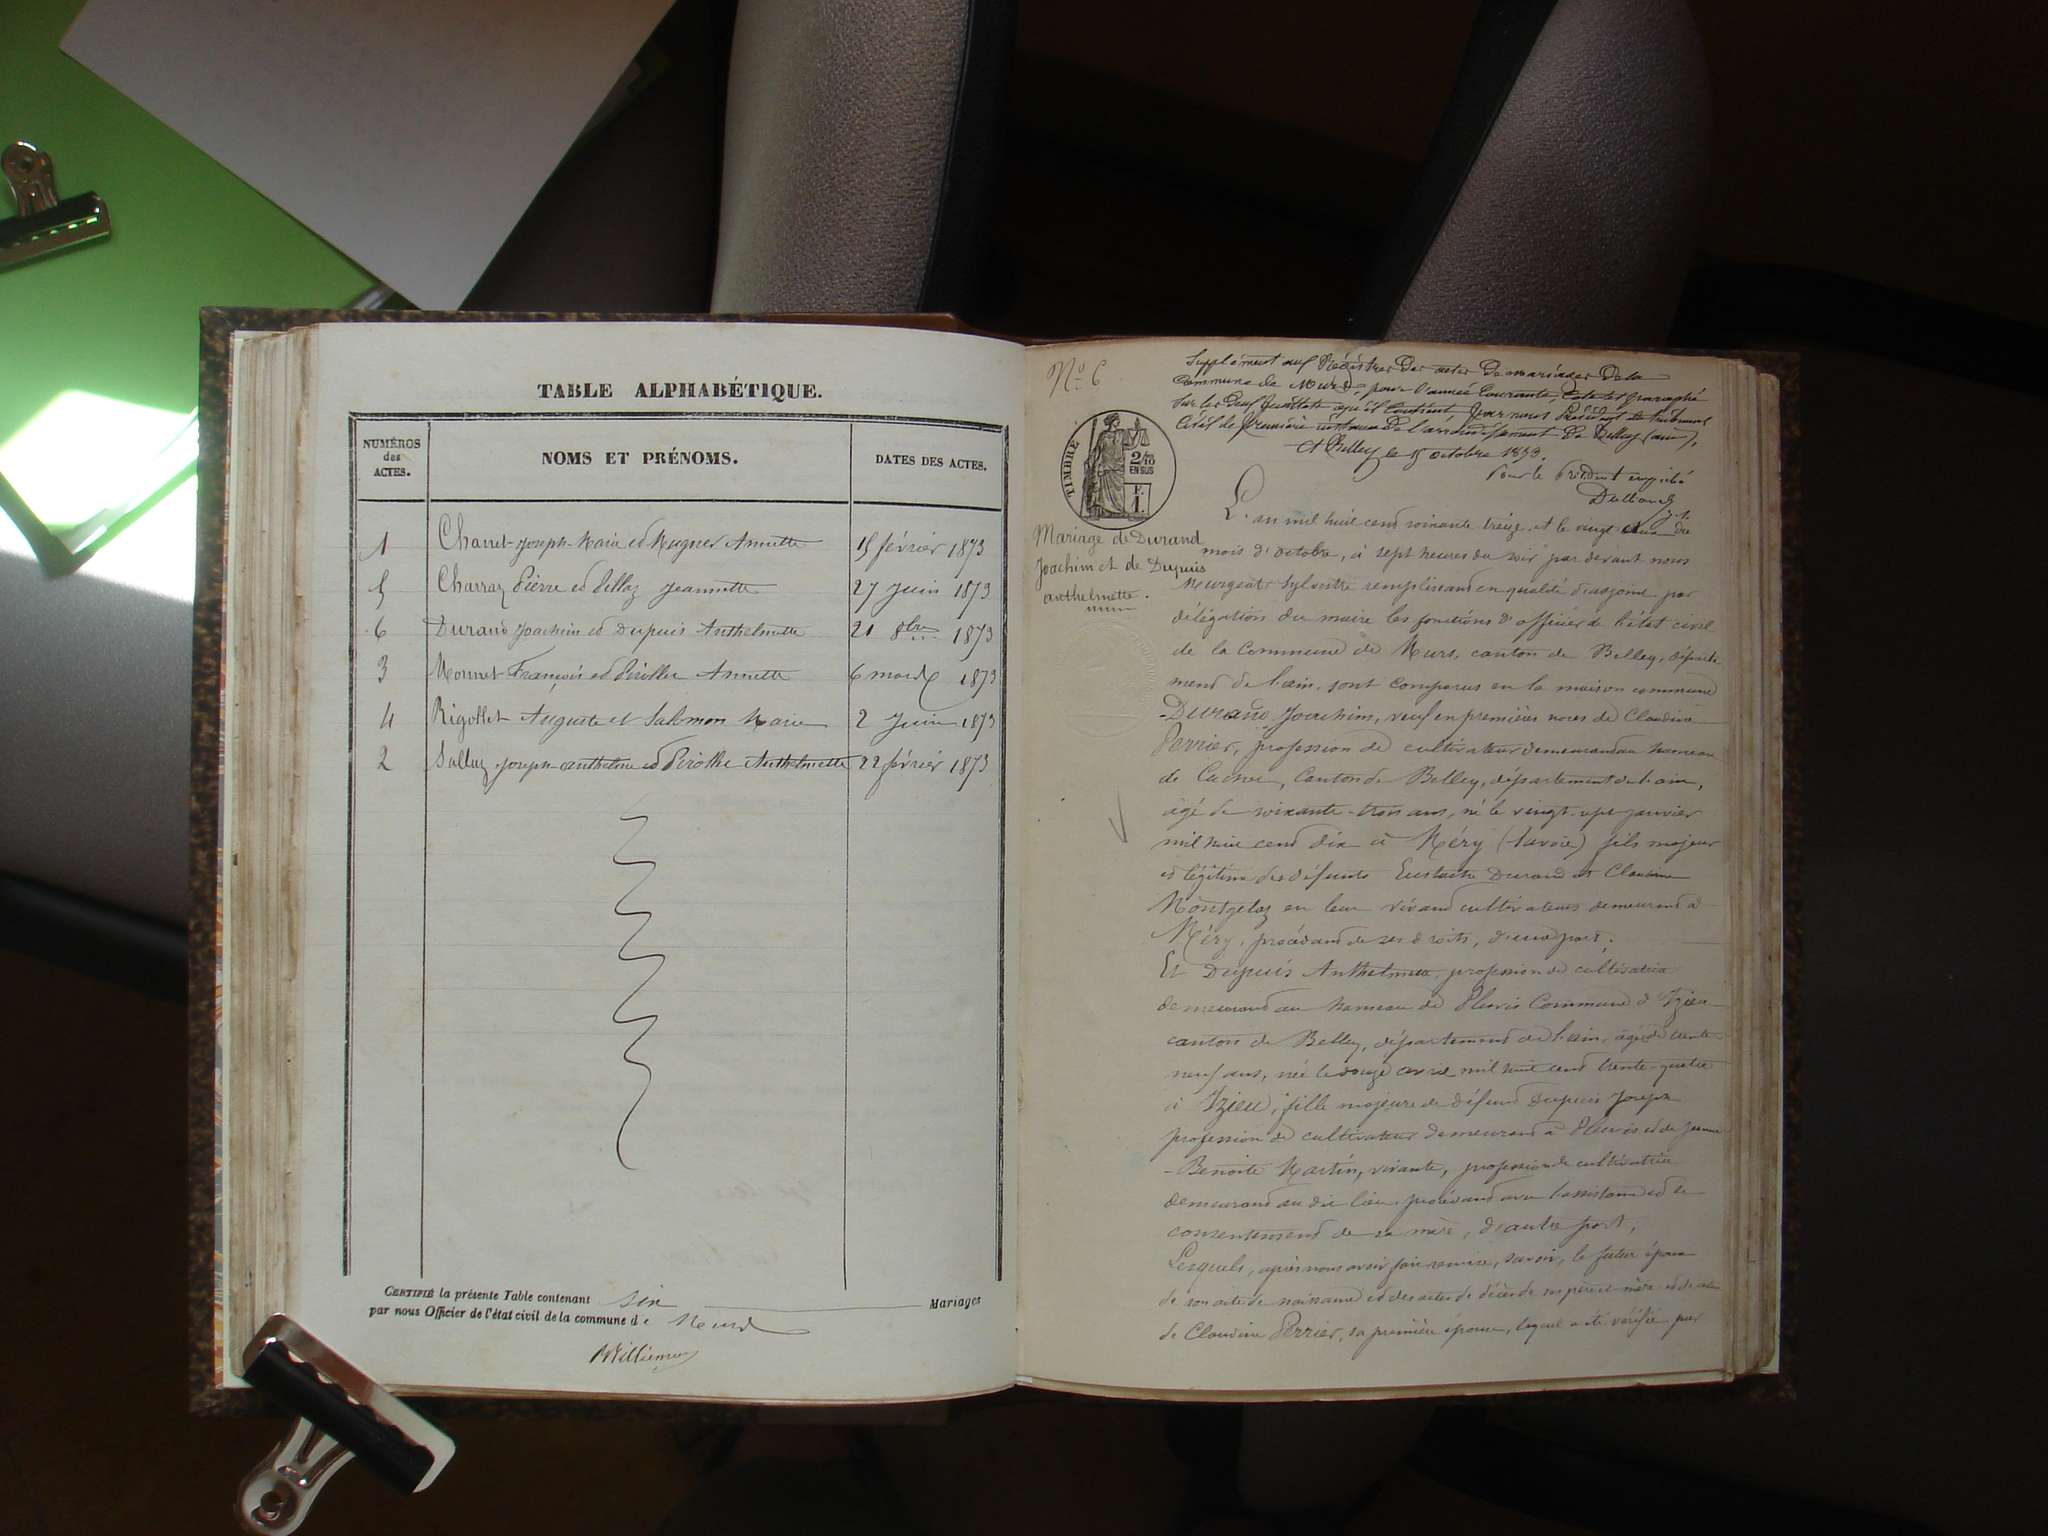 TABLE ALPHABÉTIQUE.
NUMÉROS des ACTES.
NOMS ET PRÉNOMS.
DATES DES ACTES.
1 Joseph Marie et Annette 15 février 1873
5 Charraz Pierre et Pillaz Jeannette 27 Juin 1873
6 Durand Joachim et Dupuis Anthelmette 21 8bre 1873
3 Monnet François et Annette 6 mars 1873
4 Rigollet Auguste et Salomon Marie 2 Juin 1873
2 Sallaz Joseph-anthelme et Anthelmette 22 février 1873
CERTIFIÉ la présente Table contenant six Mariages
par nous Officier de l'état civil de la commune de Murs
No 6
Supplément aux Régistres des actes de mariages de la
Commune de Murs, pour l'année Courante, Coté et paraphé
sur les deux feuillets qu'il Contient, par nous Président du Tribunal
Civil de première instance de l'arrondissement de Belley (ain),
A Belley le 15 octobre 1873.
Pour le Président empêché
TIMBRE
2/10
EN SUS
F.
1.
Mariage de Durand
Joachim et de Dupuis
anthelmette.
L'an mil huit cent soixante treize et le vingt un du
mois d'octobre, à sept heures du soir par devant nous
Sylvestre remplissant en qualité d'adjoint par
délégation du maire les fonctions d'officier de l'état civil
de la Commune de Murs, canton de Belley, départe
ment de l'ain, sont comparus en la maison commune
Durand Joachim, veuf en premières noces de Claudine
Perrier, profession de cultivateur demeurant au hameau
de Canton de Belley, département de l'ain,
âgé de soixante-trois ans, né le vingt sept janvier
mil huit cent dix à Méry (Savoie) fils majeur
et légitime des défunts Eustache Durand et Claudine
Montgelaz en leur vivant cultivateurs demeurant à
Méry, procédant de ses droits, d'une part;
Et Dupuis Anthelmette, profession de cultivatrice
demeurant au hameau de Commune d'Izieu
canton de Belley, département de l'ain, âgée de trente
neuf ans, née le douze avril mil huit cent trente-quatre
à Izieu, fille majeure de défunt Dupuis Joseph
profession de cultivateur demeurant à et de Jeanne
-Benoite Martin, vivante, profession de cultivatrice
demeurant au dit lieu, procédant avec l'assistance et le
consentement de sa mère, d'autre part;
Lesquels, après nous avoir fait remise, savoir, le futur époux
de son acte de naissance et des actes de décès de ses père et mère et de celui
de Claudine Perrier, sa première épouse, lequel a été vérifié par